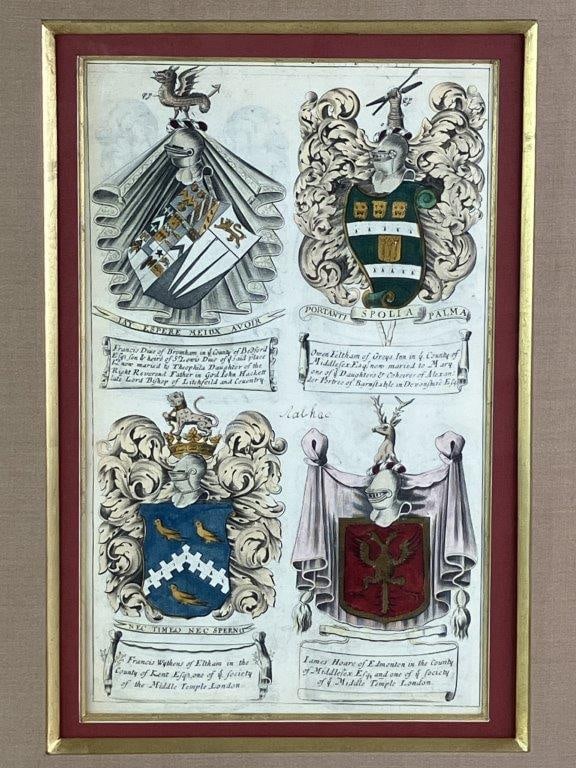 IAY ESPERE MEIUX AVOIR
Francis Diue of Bromham in ẏ County of Bedford
Esqr. son & heire of Sr. Lewis Diue of ẏ said place
Kt. now maried to Theophila Daughter of the
Right Reverend Father in God Iohn Hackett
late Lord Bishop of Litchfeild and Couentry
PORTANTI SPOLIA PALMA
Owen Feltham of Greys Inn in ẏ County of
Middlesex Esqr. now maried to Mary
one of ẏ Daughters & Coheires of Alexan
der Portree of Barnstable in Devonshire Esqr.
NEC TIMEO NEC SPERNO
Francis Wythens of Eltham in the
County of Kent Esqr. one of ẏ society
of the Middle Temple London.
Iames Hoare of Edmonton in the County
of Middlesex Esqr. and one of ẏ society
of ẏ Middle Temple London.